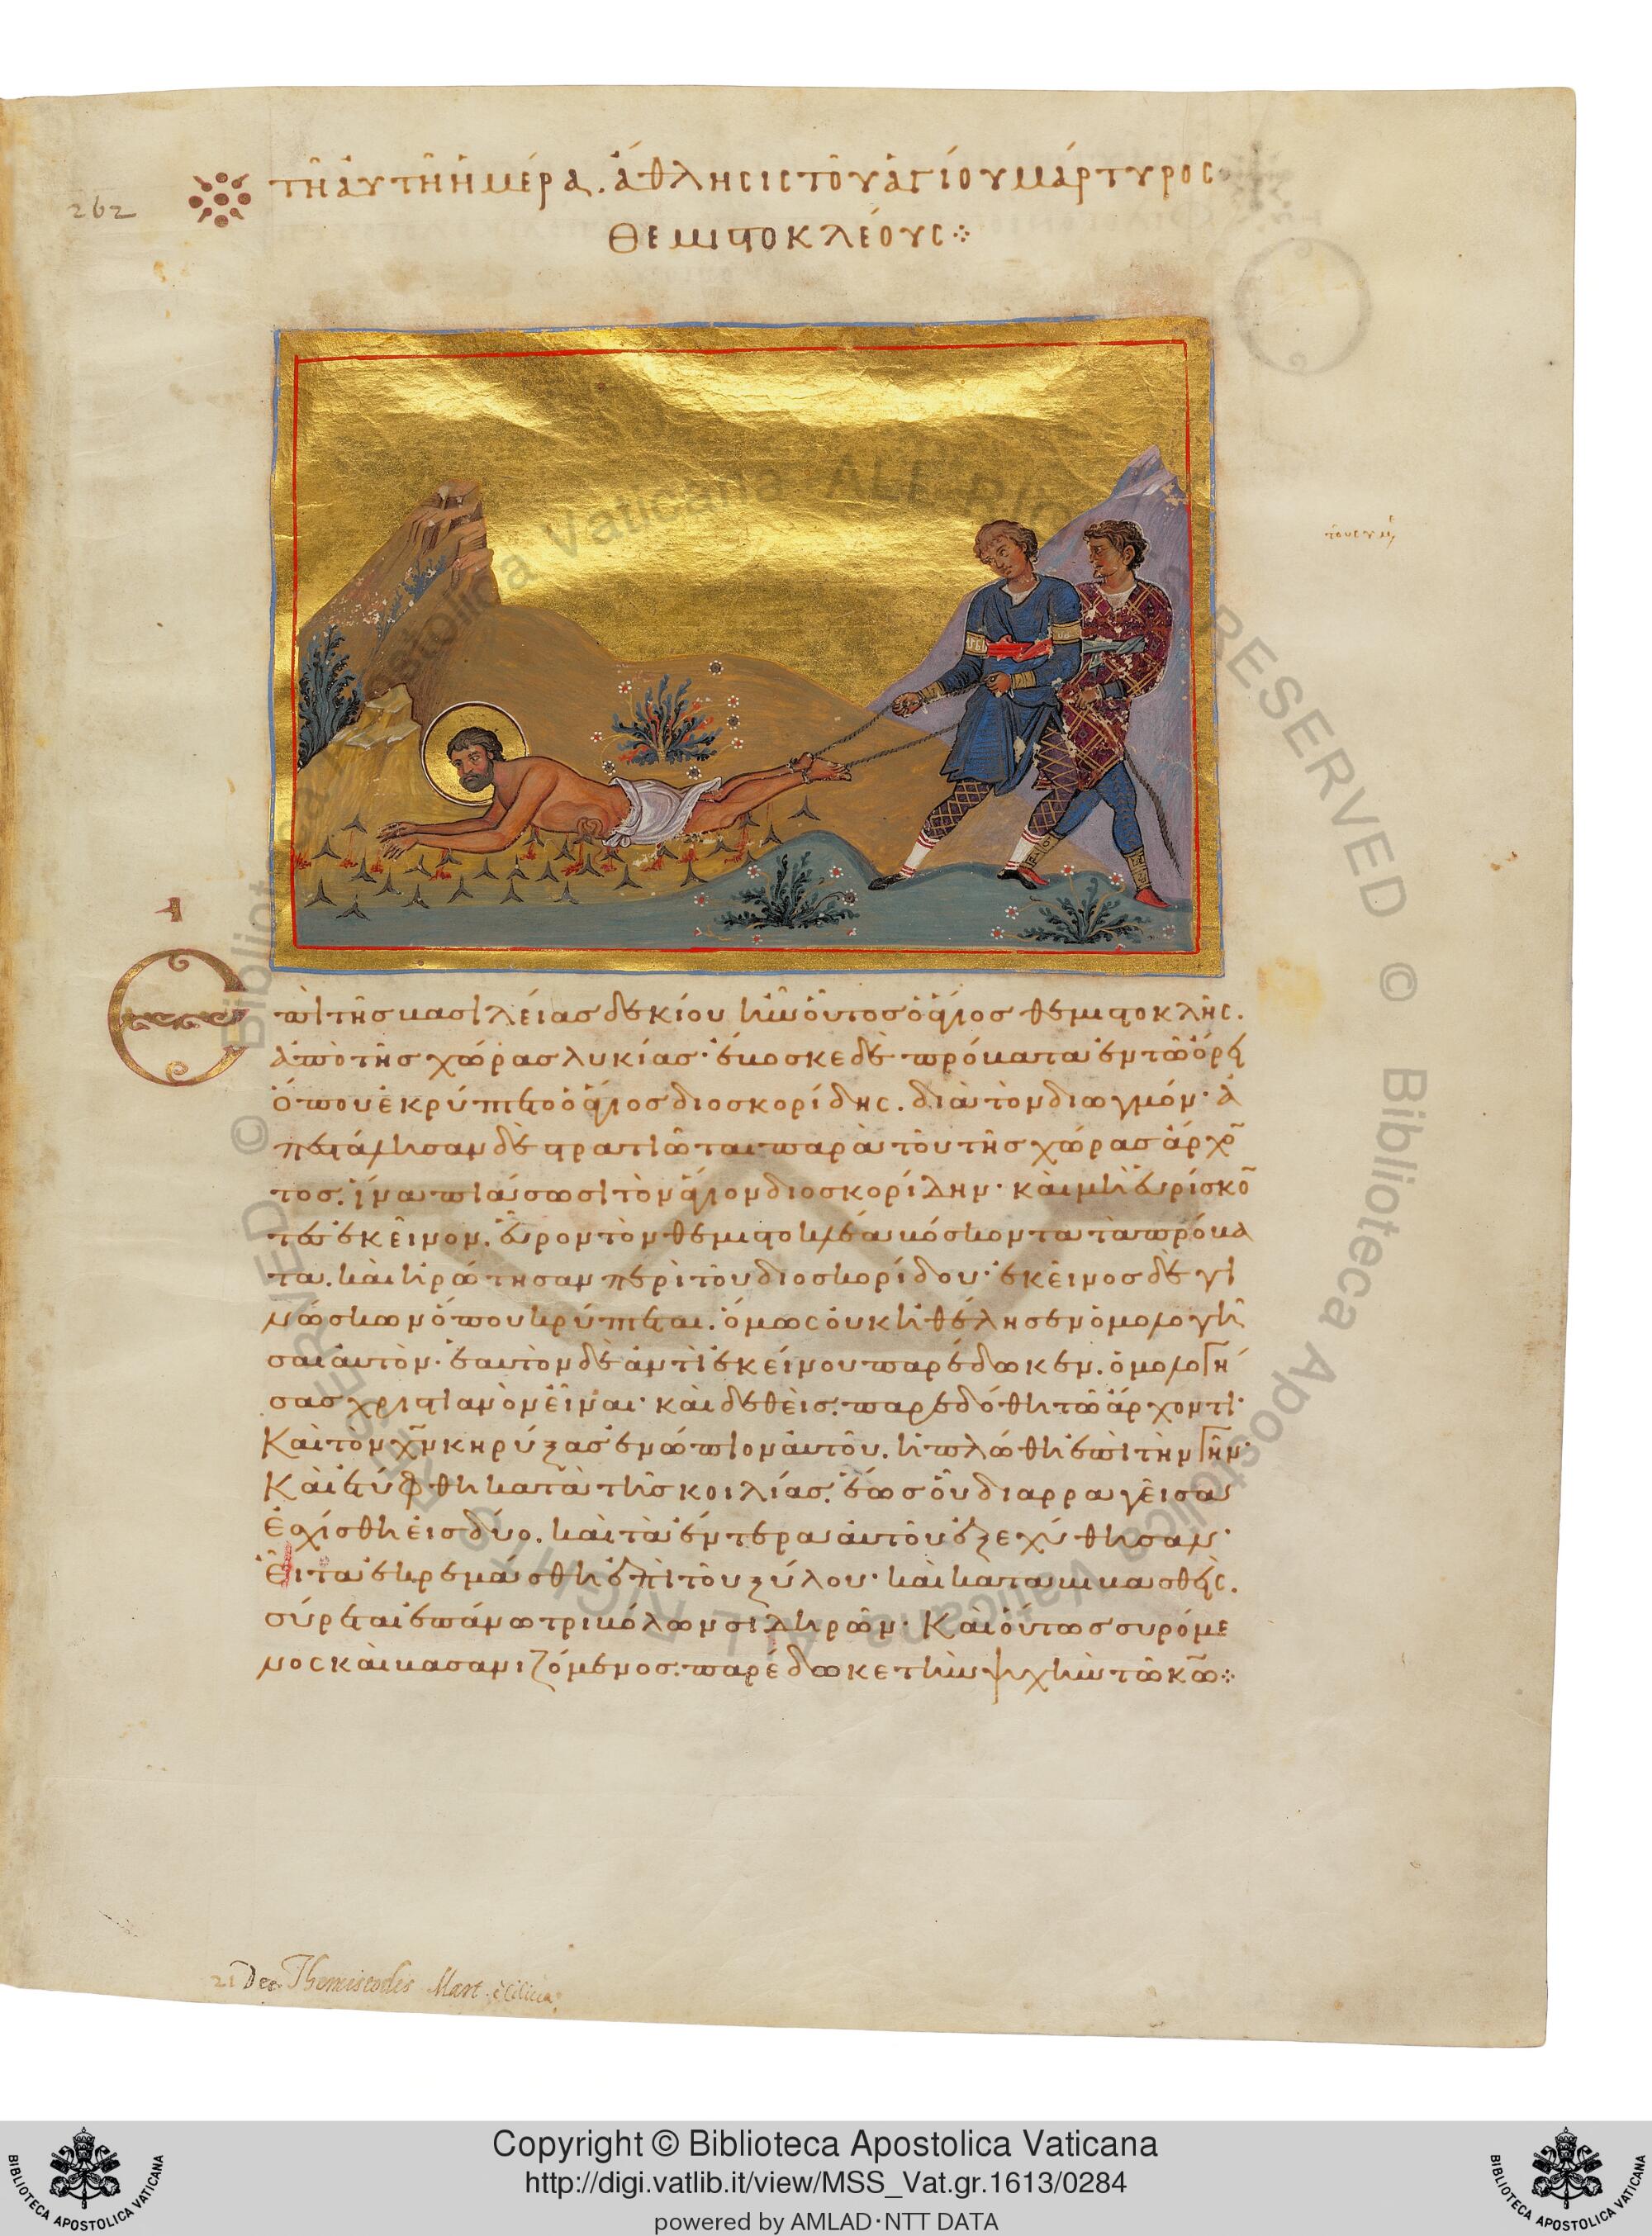 262
τῆ αὐτῆ ἡμέρα. ἄθλησις τοῦ ἁγίου μάρτυρος
Θεμιστοκλέους
Ἐπὶ τῆς βασιλείας δεκίου ἦν οὗτος ὁ ἅγιος θεμιστοκλῆς.
ἀπὸ τῆς χώρας λυκίας· ἔβοσκε δὲ πρόβατα ἐν τῶ ὄρει
ὅπου ἐκρύπτετο ὁ ἅγιος διοσκορίδης. διὰ τὸν διωγμόν· ἀ
πεστάλησαν δὲ στρατιῶται παρὰ τοῦ τῆς χώρας ἄρχο̅
τος. ἵνα πιάσωσι τὸν ἅγιον διοσκορίδην· καὶ μὴ εὑρίσκο̅
τες ἐκεῖνον. εὗρον τὸν θεμιστοκλέα βόσκοντα τὰ πρόβα
τα. καὶ ἠρώτησαν περὶ τοῦ διοσκορίδου· ἐκεῖνος δὲ γι
νώσκων ὅπου κρύπτεται. ὅμως οὐκ ἠθέλησεν ὁμολογῆ
σαι αὐτὸν· ἑαυτὸν δὲ ἀντὶ ἐκείνου παρέδωκεν. ὁμολογή
σας χριστιανὸν εἶναι· καὶ δεθεὶς. παρεδόθη τῶ ἄρχοντι·
Καὶ τὸν χ̅ν κηρύξας ἐνώπιον αὐτοῦ. ἡπλώθη ἐπὶ τὴν γῆν·
Καὶ ἐτύφθη κατὰ τῆς κοιλίας. ἕως οὗ διαρραγεῖσα
ἐσχίσθη εἰς δύο. καὶ τὰ ἔντερα αὐτοῦ ἐξεχύθησαν·
Εἶτα ἐκρεμάσθη ἐπὶ τοῦ ξύλου· καὶ καταβιβασθεὶς.
σύρεται ἐπάνω τριβόλων σιδηρῶν· Καὶ οὕτως συρόμε
νος καὶ βασανιζόμενος. παρέδωκε τὴν ψυχὴν τῶ κ̅ω
21 Dec. Themistoclis Mart.
© Biblioteca Apostolica Vaticana ALL RIGHTS RESERVED © Biblioteca Apostolica Vaticana ALL RIGHTS RESERVED
Copyright © Biblioteca Apostolica Vaticana
http://digi.vatlib.it/view/MSS_Vat.gr.1613/0284
powered by AMLAD·NTT DATA
BIBLIOTECA APOSTOLICA VATICANA
BIBLIOTECA APOSTOLICA VATICANA